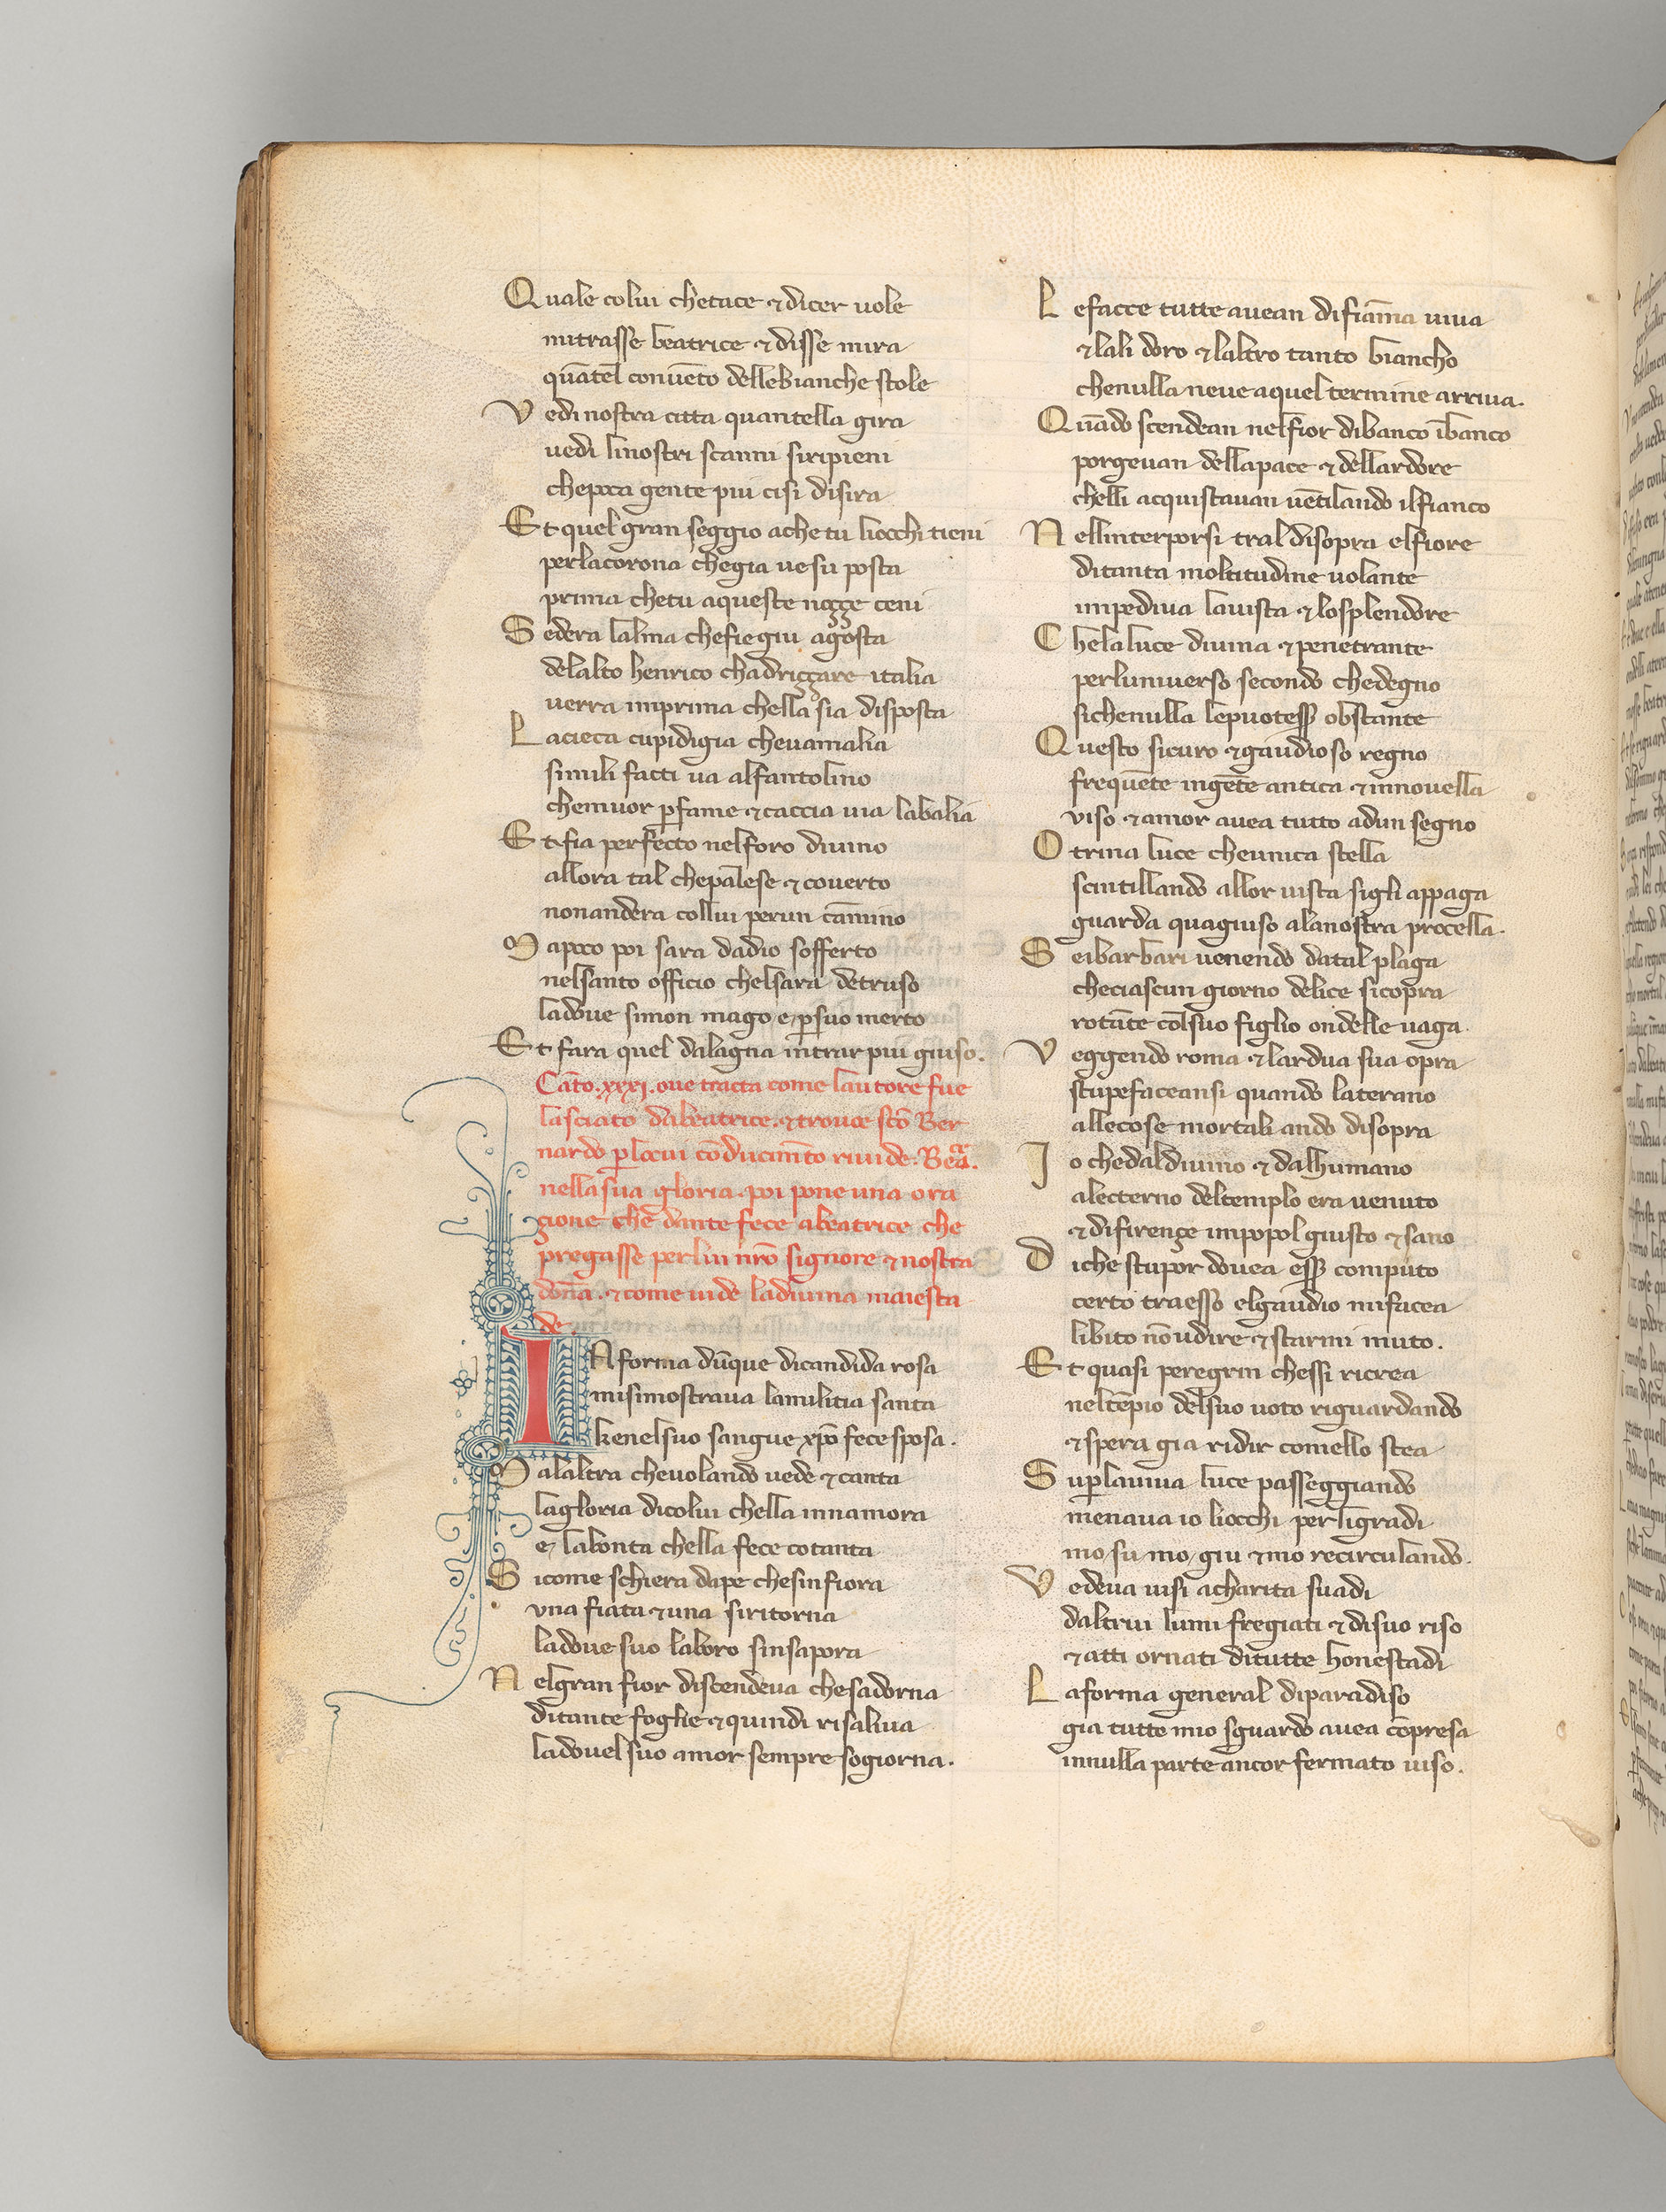 Quale colui chetace & dicer uole
mitrasse beatrice & disse mira
quātel conuēto dellebianche stole
Vedi nostra citta quantella gira
uedi linostri scanni siripieni
chepoca gente piu cisi disira
Et quel gran seggio ache tu liocchi tieni
perlacorona chegia uesu posta
prima chetu aqueste noççe ceni
Sedera lalma chefiegiu agosta
delalto henrico chadriççare italia
uerra imprima chella sia disposta
Lacieca cupidigia cheuamalia
simili facti ua alfantolino
chemuor pfame & caccia uia labalia
Et fia perfecto nelforo diuino
allora tal chepalese & couerto
nonandera collui perun camino
Mapoco poi sara dadio sofferto
nelsanto officio chelsara detruso
ladoue simon mago e psuo merto
Et fara quel dalagna intrar piu giuso.
Cāto .xxxi. oue tracta come lautore fue
lasciato dabeatrice. & trouoe scō Ber
nardo plocui cōducimēto riuide. Bea.
nella sua gloria. poi pone una ora
çione che dante fece abeatrice che
pregasse perlui nrō signore & nostra
donā. & come uide ladiuina maiesta
de.
IN forma dūque dicandida rosa
misimostraua lamilitia santa
kenelsuo sangue xpō fece sposa.
Malaltra cheuolando uede & canta
lagloria dicolui chella innamora
e labonta chella fece cotanta
Sicome schiera dape chesinfiora
vna fiata & una siritorna
ladoue suo laboro sinsapora
Nelgran fior discendeua chesadorna
ditante foglie & quindi risaliua
ladouel suo amor sempre sogiorna.
Lefacce tutte auean difiāma uiua
& lali doro & laltro tanto biancho
chenulla neue aquel termine arriua.
Quādo scendean nelfior dibanco ībanco
porgeuan dellapace & dellardore
chelli acquistauan uētilando ilfianco
Nellinterporsi tral disopra elfiore
ditanta moltitudine uolante
impediua lauista & losplendore
Chelaluce diuina & penetrante
perluniuerso secondo chedegno
sichenulla lepuotess obstante
Questo sicuro & gaudioso regno
frequēte ingēte antica & innouella
viso & amor auea tutto adun segno
O trina luce cheunica stella
scintillando allor uista sigli appaga
guarda quagiuso alanostra procella.
Seibarbari uenendo datal plaga
checiascun giorno delice sicopra
rotāte cōlsuo figlio ondelle uaga.
Veggendo roma & lardua sua opra
stupefaceansi quando laterano
allecose mortali ando disopra
Io chedaldiuino & dalhumano
alecterno deltemplo era uenuto
& difirençe impopol giusto & sano
Diche stupor douea ess computo
certo traesso elgaudio mifacea
libito nō udire & starmi muto.
Et quasi peregrin chessi ricrea
neltēpio delsuo uoto riguardando
& spera gia ridir comello stea
Suplauiua luce passeggiando
menaua io liocchi perligradi
mo su mo giu & mo recirculando.
Vedeua uisi acharita suadi
daltrui lumi fregiati & disuo riso
& atti ornati ditutte honestadi
Laforma general diparadiso
gia tutto mio sguardo auea cōpresa
innulla parte ancor fermato uiso.